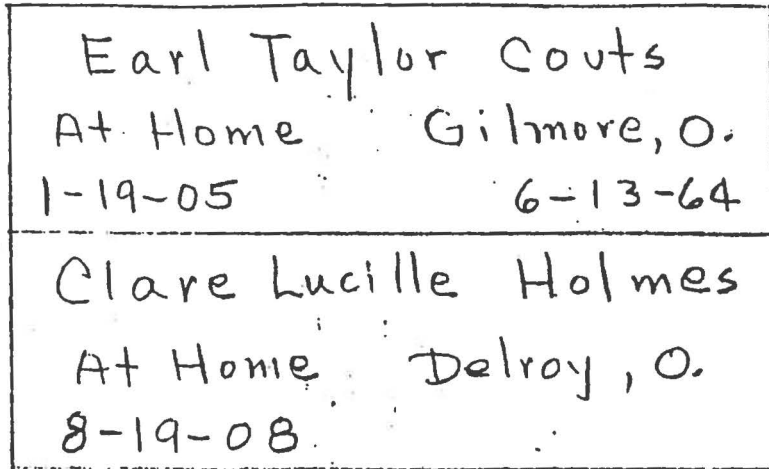 Earl Taylor Couts
At Home Gilmore, O.
1-19-05 6-13-64
Clare Lucille Holmes
At Home Delroy, O.
8-19-08